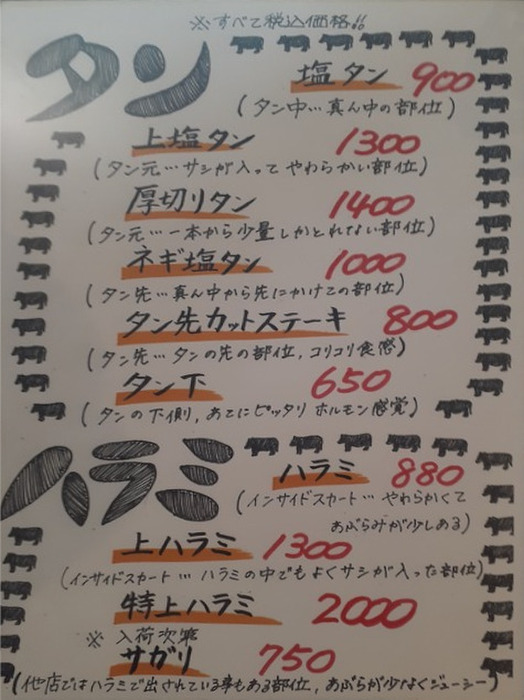 ※すべて税込価格!!
タン
塩タン 900
(タン中…真ん中の部位)
上塩タン 1300
(タン元…サシが入ってやわらかい部位)
厚切りタン 1400
(タン元…一本から少量しかとれない部位)
ネギ塩タン 1000
(タン先…真ん中から先にかけての部位)
タン先カットステーキ 800
(タン先…タンの先の部位,コリコリ食感)
タン下 650
(タンの下側,あてにピッタリ ホルモン感覚)
ハラミ
ハラミ 880
(インサイドスカート…やわらかくて
あぶらみが少しある)
上ハラミ 1300
(インサイドスカート…ハラミの中でもよくサシが入った部位)
特上ハラミ 2000
※入荷次第
サガリ 750
(他店ではハラミで出されている事もある部位,あぶらが少なくジューシー)